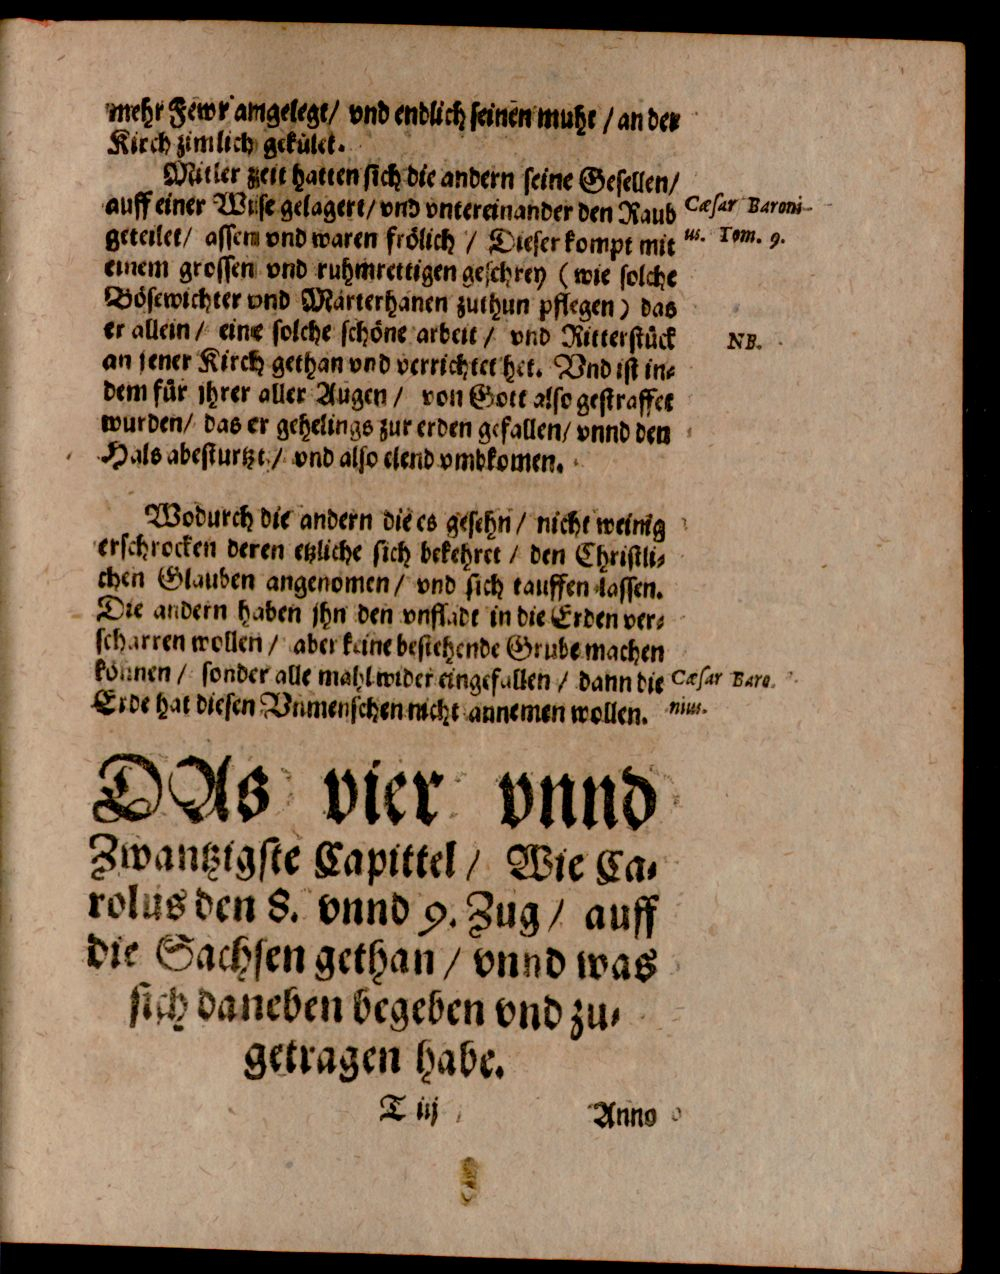 mehr Fewr amgelegt/ vnd endlich seinen muht / an der
Kirch zimlich gekület.
Mitler zeit hatten sich die andern seine Gesellen/
auff einer Wise gelagert/ vnd vntereinander den Raub
Cæsar Baroni-
geteilet/ assen vnd waren frölich / Dieser kompt mit
us. Tom. 9.
einem grossen vnd ruhmrettigen geschrey (wie solche
Bösewichter vnd Marterhanen zuthun pflegen) das
er allein/ eine solche schöne arbeit / vnd Ritterstück
NB.
an jener Kirch gethan vnd verrichtet het. Vnd ist in-
dem für jhrer aller Augen / von Gott also gestraffet
wurden/ das er gehelings zur erden gefallen/ vnnd den
Hals abesturtzt / vnd also elend vmbkomen.
Wodurch die andern die es gesehn / nicht weinig
erschrocken deren etzliche sich bekehret / den Christli-
chen Glauben angenomen / vnd sich tauffen lassen.
Die andern haben jhn den vnfladt in die Erden ver-
scharren wollen / aber keine bestehende Grube machen
können / sonder alle mahl wider eingefallen / dann die
Cæsar Baro
Erde hat diesen Vnmenschen nicht annemen wollen.
nius.
DAs vier vnnd
Zwantzigste Capittel / Wie Ca-
rolus den 8. vnnd 9. Zug / auff
die Sachsen gethan / vnnd was
sich daneben begeben vnd zu-
getragen habe.
T iij
Anno